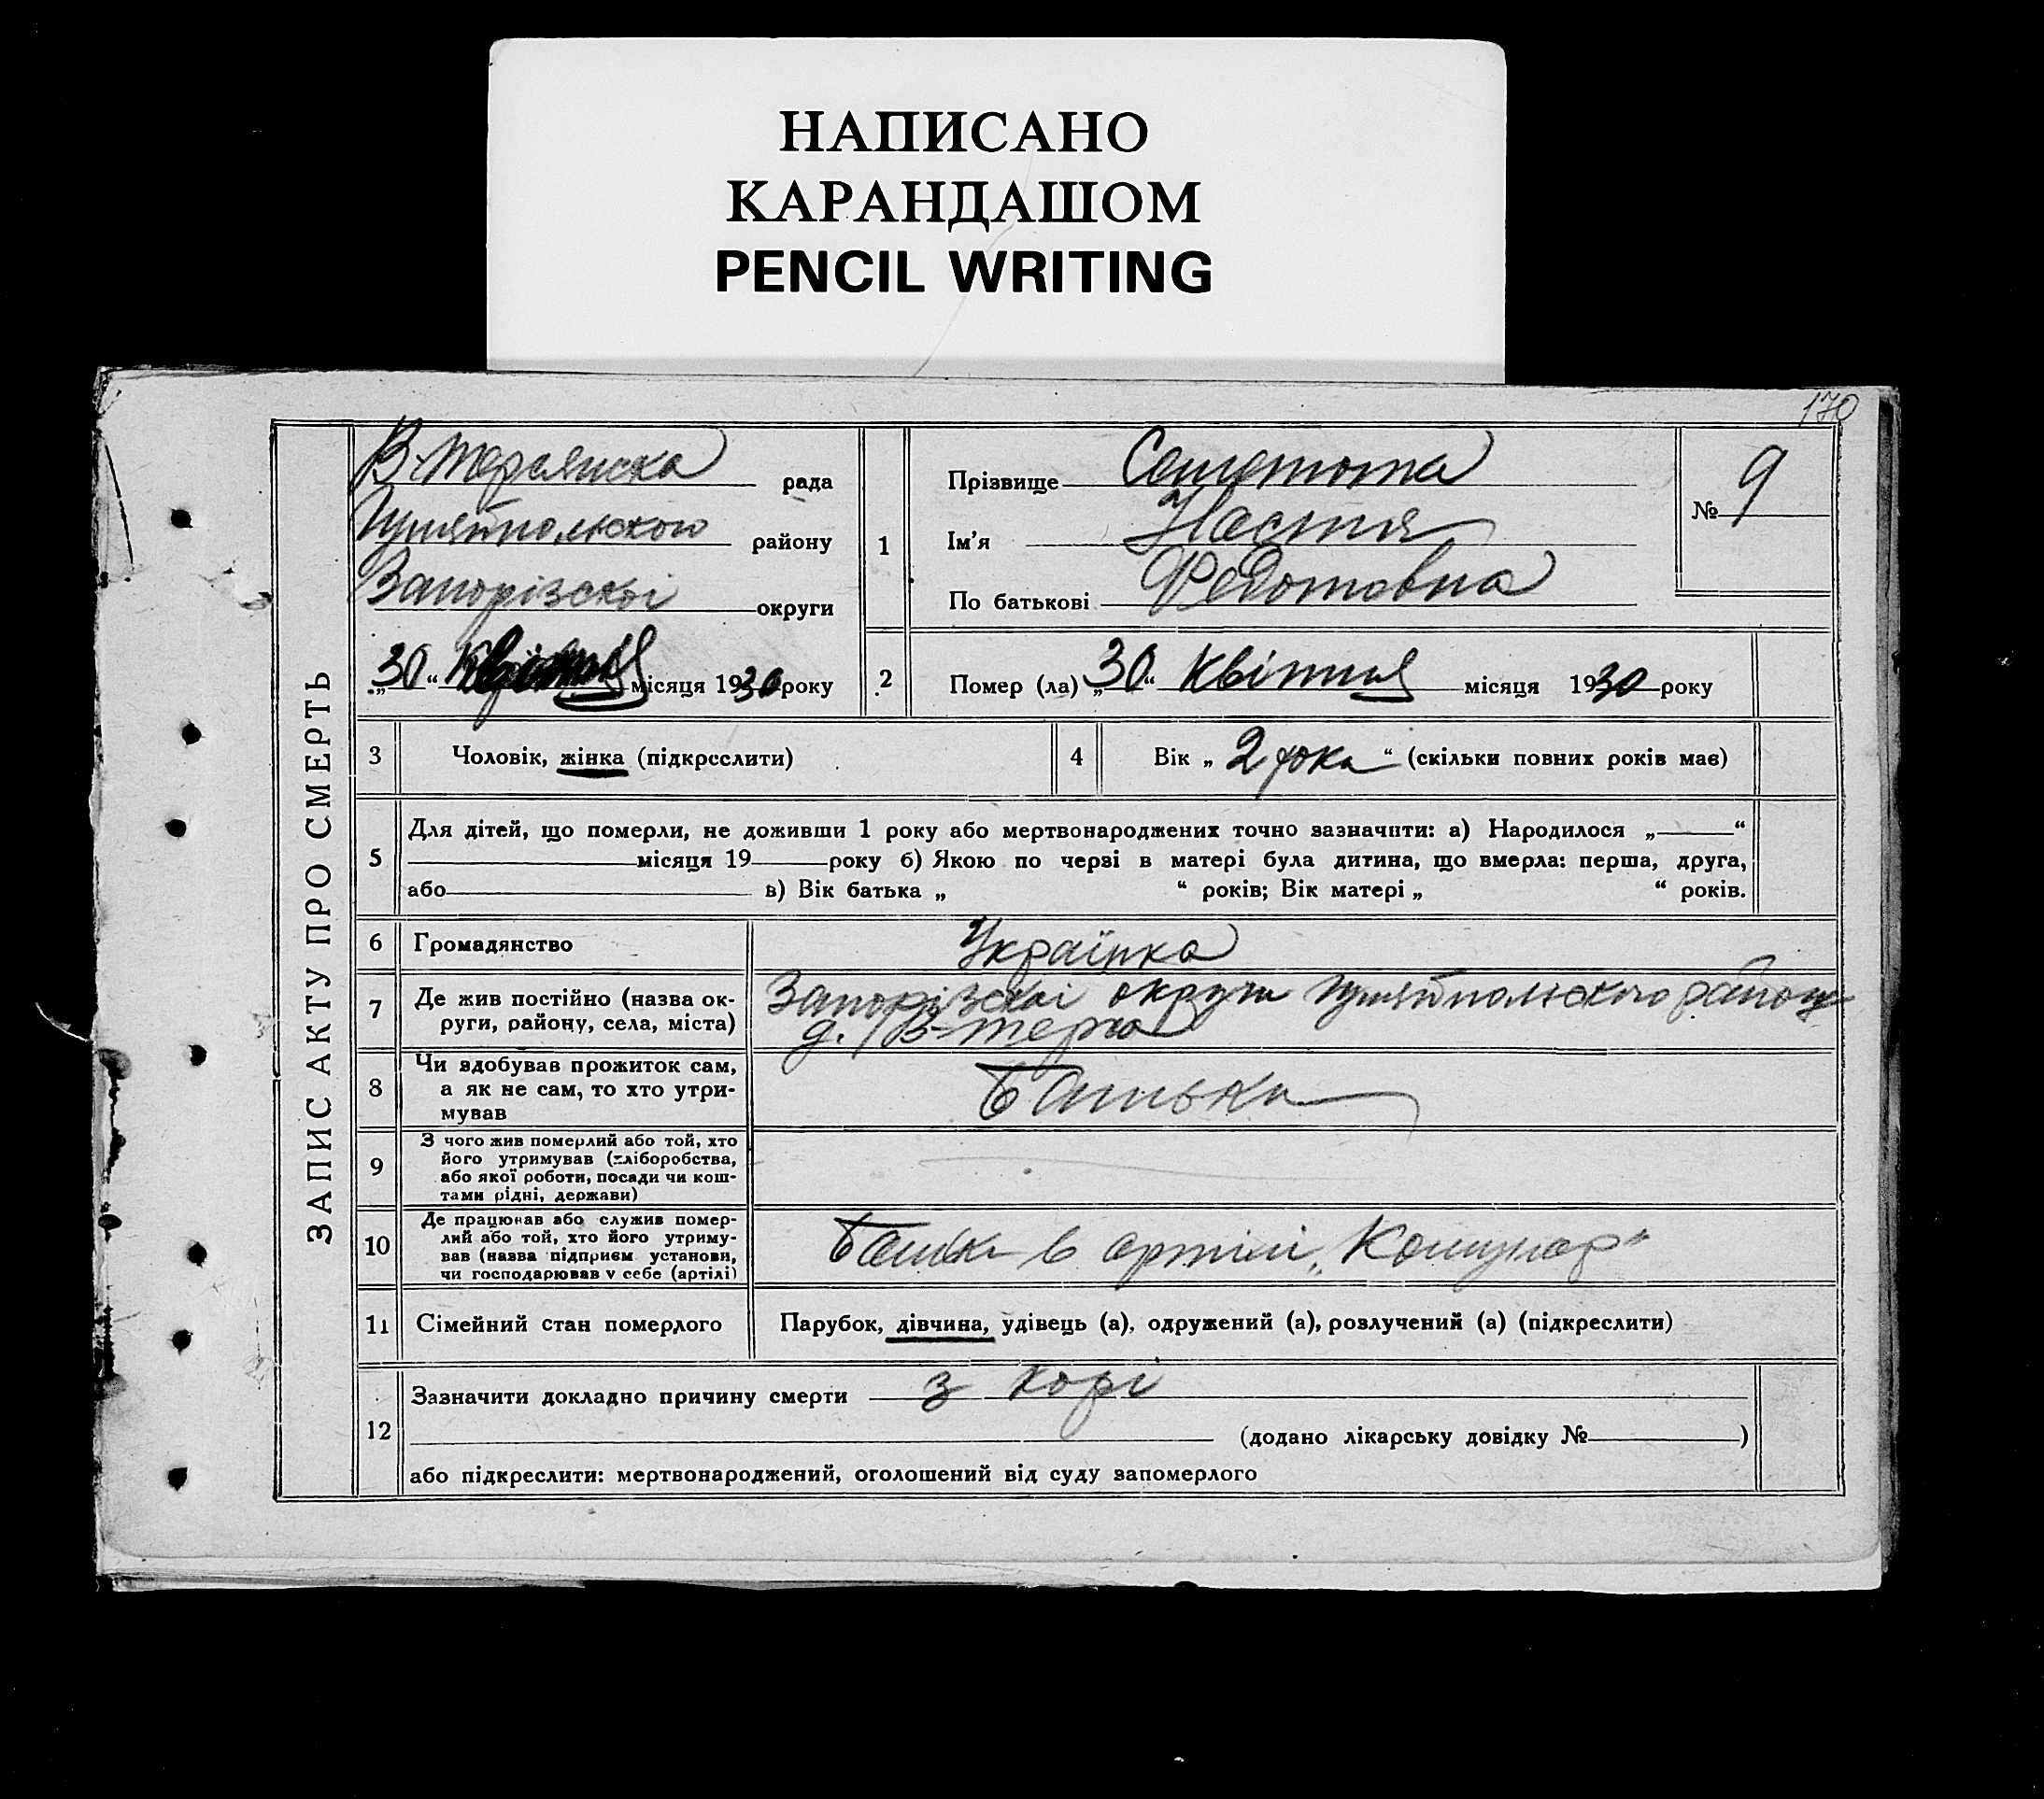 НАПИСАНО
КАРАНДАШОМ
PENCIL WRITING
170
ЗАПИС АКТУ ПРО СМЕРТЬ
рада
Гуляйпольського району
Запорізскої округи
„30“ квітня місяця 1930 року
1
Прізвище
Ім’я Настя
По батькові Федотовна
№ 9
2 Помер (ла) „30“ Квітня місяця 1930 року
3 Чоловік, жінка (підкреслити)
4 Вік „ 2 рока “ (скільки повних років має)
5
Для дітей, що померли, не доживши 1 року або мертвонароджених точно зазначити: а) Народилося „ “
місяця 19 року б) Якою по черзі в матері була дитина, що вмерла: перша, друга,
або в) Вік батька „ “ років; Вік матері „ “ років.
6 Громадянство Українка
7
Де жив постійно (назва ок-
руги, району, села, міста)
Запорізскої округи Гуляйпольского району
8
Чи здобував прожиток сам,
а як не сам, то хто утри-
мував
Батько
9
З чого жив померлий або той, хто
його утримував (хліборобства,
або якої роботи, посади чи кош-
тами рідні, держави)
10
Де працював або служив помер-
лий або той, хто його утриму-
вав (назва підприєм установи,
чи господарював у себе (артілі)
в артілі „Комунар“
11 Сімейний стан померлого Парубок, дівчина, удівець (а), одружений (а), розлучений (а) (підкреслити)
12
Зазначити докладно причину смерти з корі
(додано лікарську довідку № )
або підкреслити: мертвонароджений, оголошений від суду запомерлого